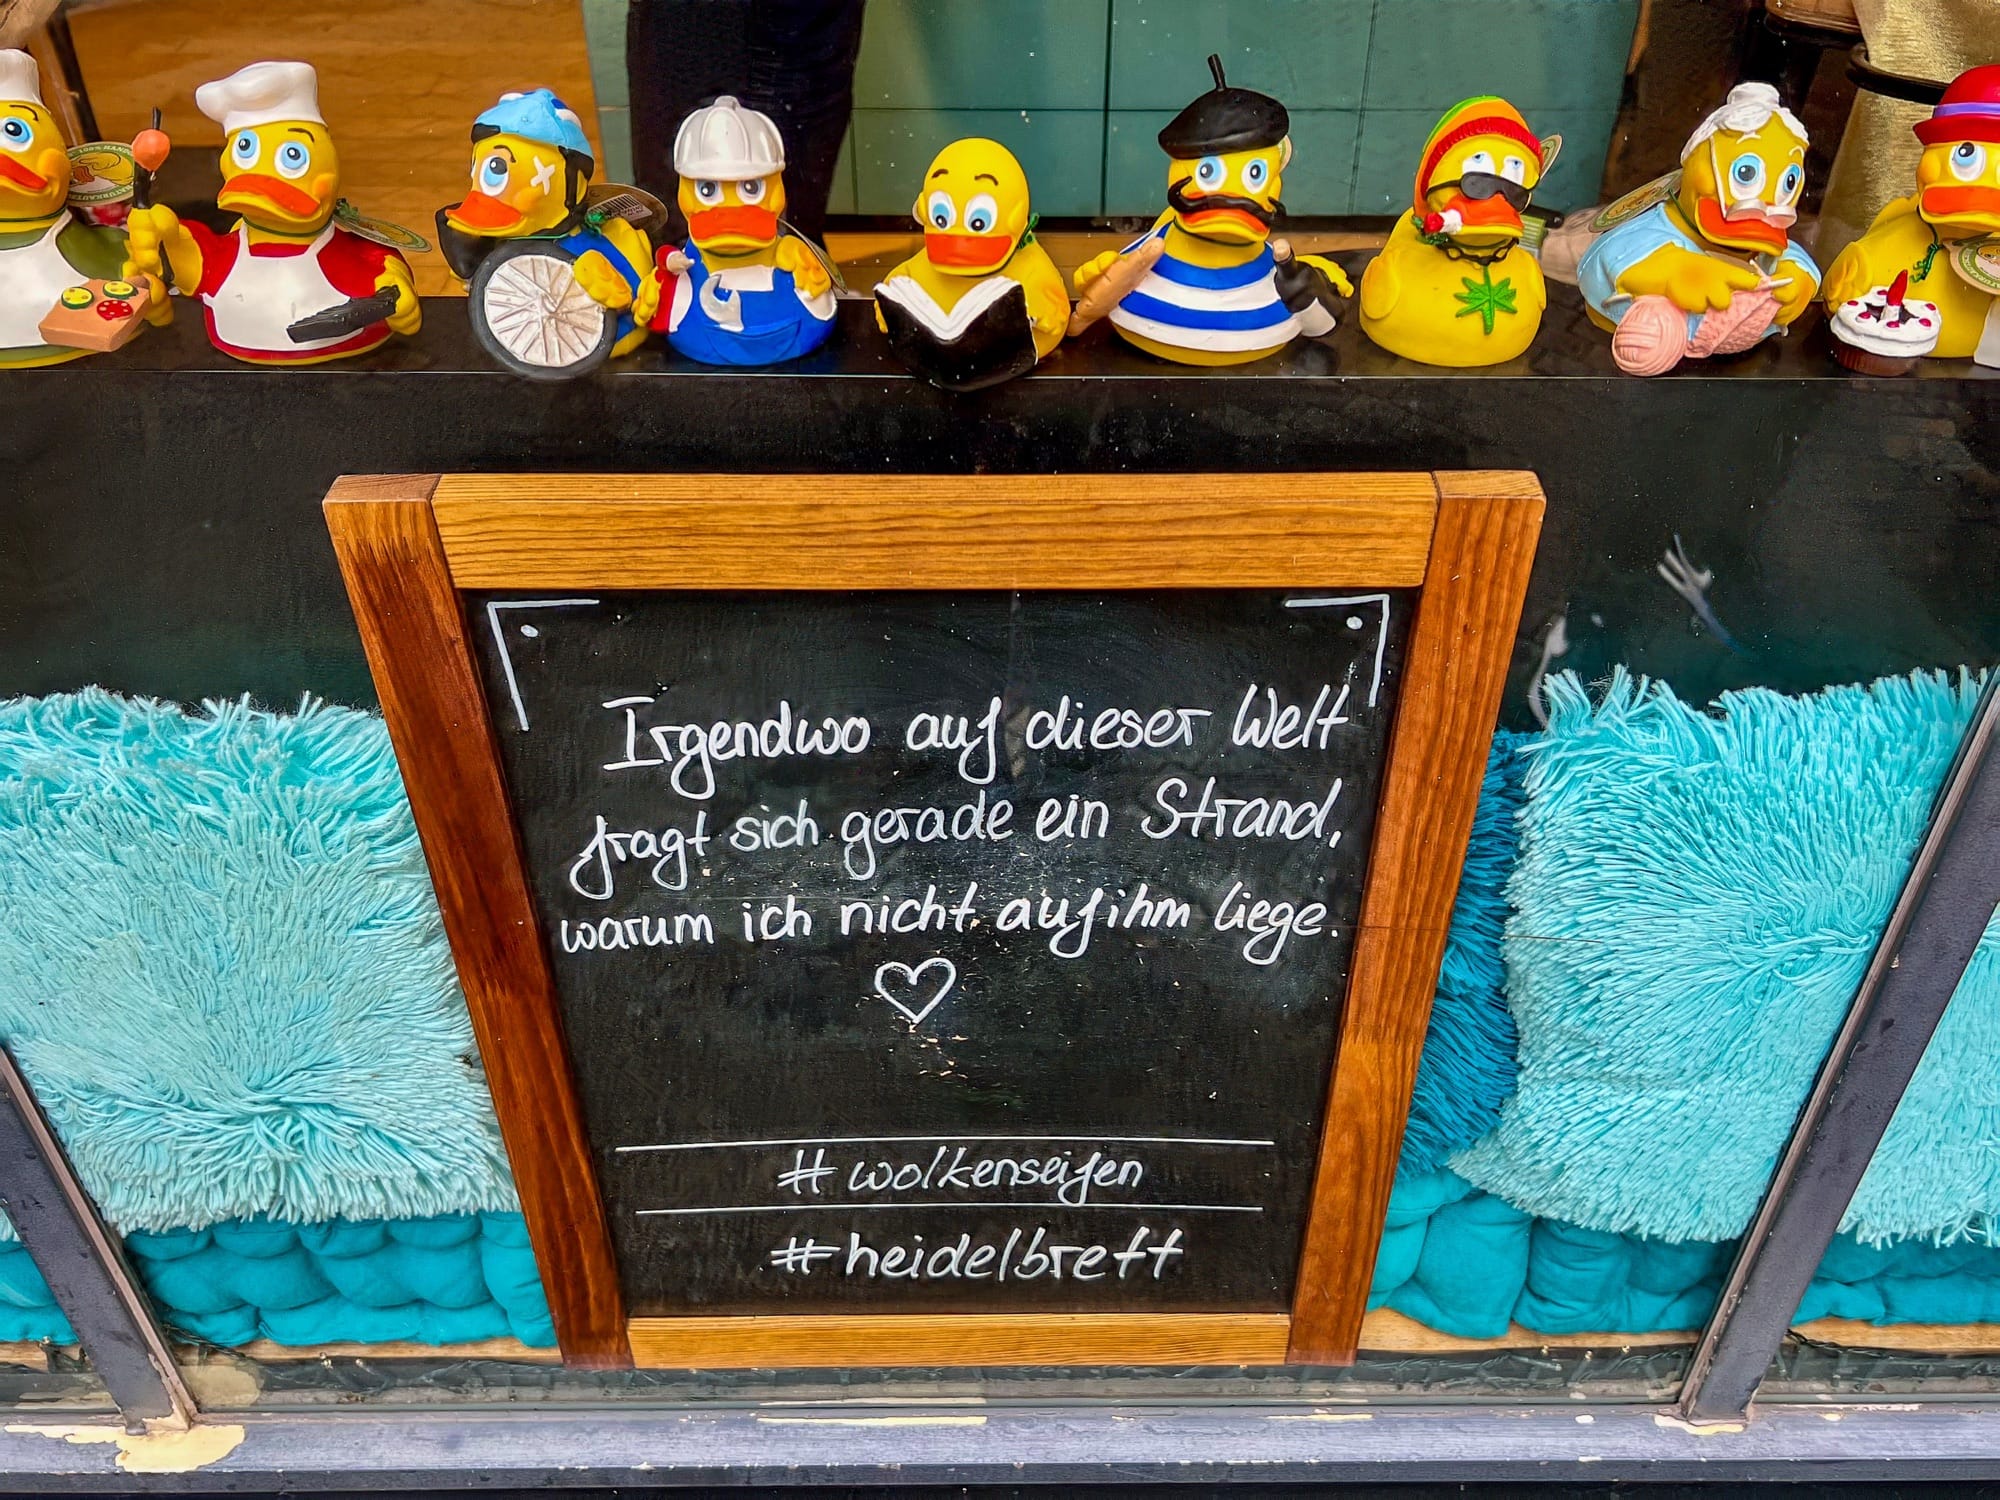 Irgendwo auf dieser Welt
fragt sich gerade ein Strand,
warum ich nicht auf ihm liege.
#wolkenseifen
#heidelbrett